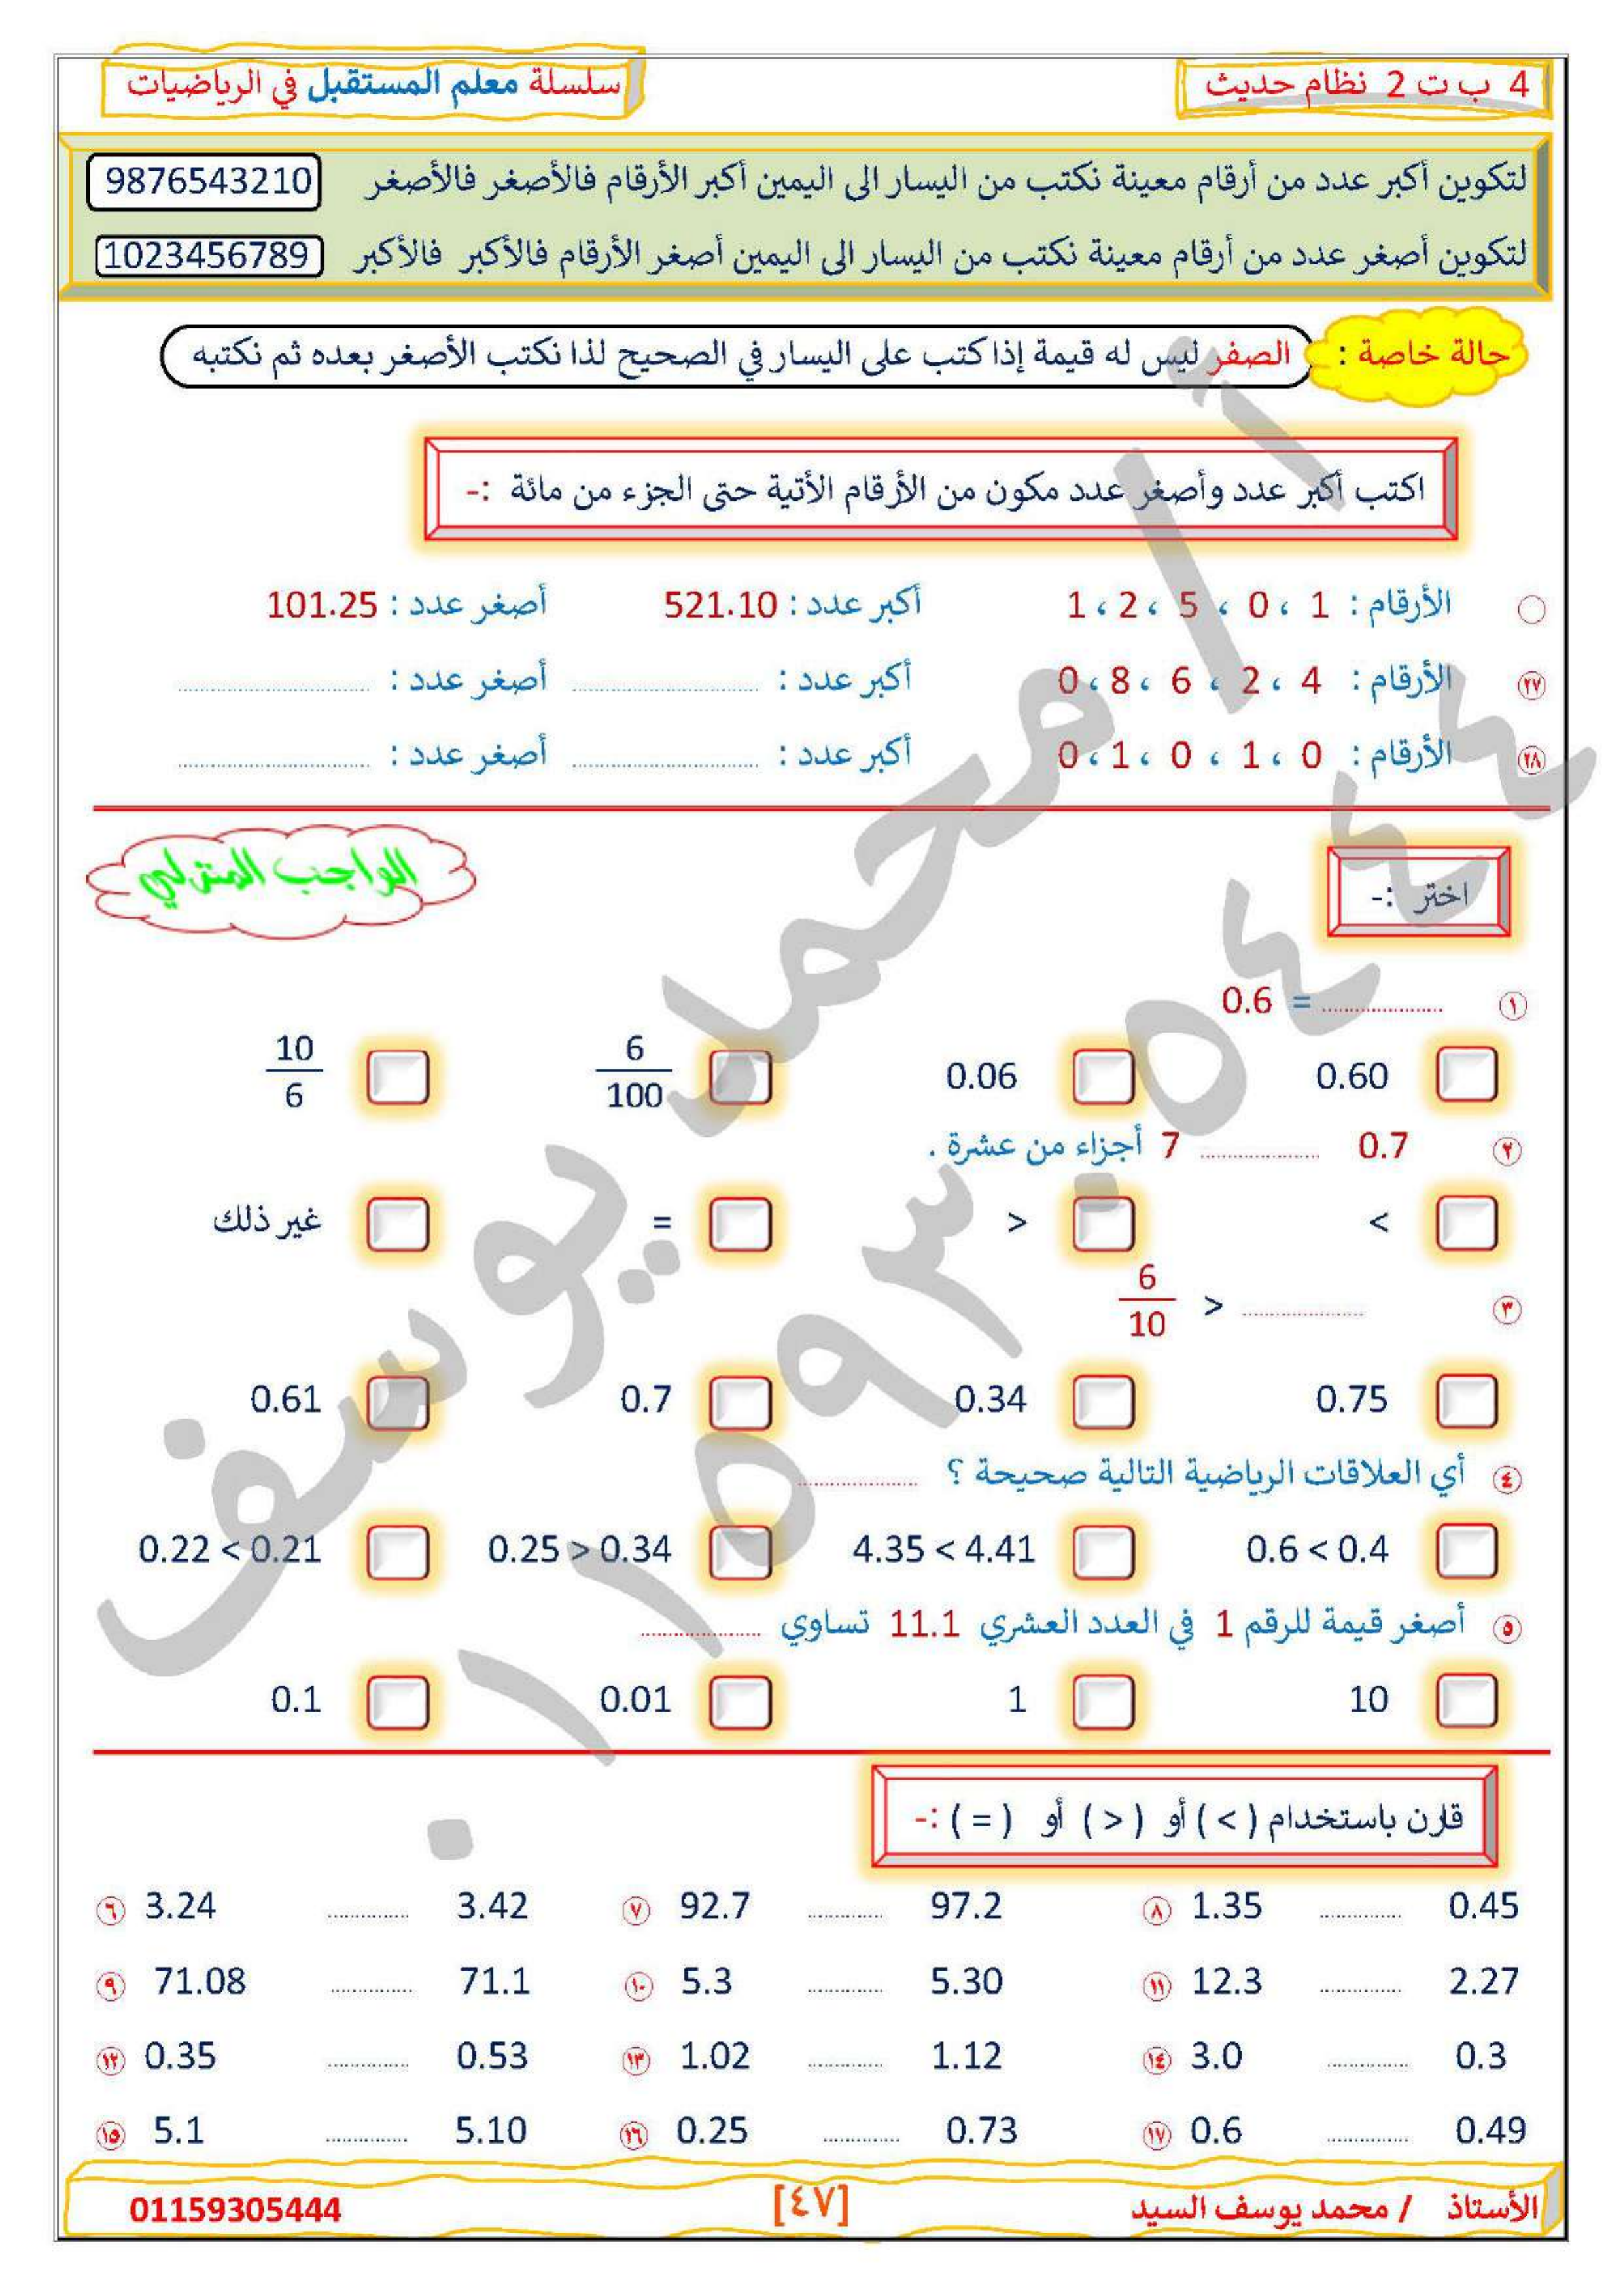 4 ب ت 2 نظام حديث
سلسلة معلم المستقبل في الرياضيات
لتكوين أكبر عدد من أرقام معينة نكتب من اليسار الى اليمين أكبر الأرقام فالأصغر فالأصغر 9876543210
لتكوين أصغر عدد من أرقام معينة نكتب من اليسار الى اليمين أصغر الأرقام فالأكبر فالأكبر 1023456789
حالة خاصة : الصفر ليس له قيمة إذا كتب على اليسار في الصحيح لذا نكتب الأصغر بعده ثم نكتبه
اكتب أكبر عدد وأصغر عدد مكون من الأرقام الأتية حتى الجزء من مائة :-
الأرقام : 1 ، 0 ، 5 ، 2 ، 1 أكبر عدد : 521.10 أصغر عدد : 101.25
٢٧ الأرقام : 4 ، 2 ، 6 ، 8 ، 0 أكبر عدد : .......... أصغر عدد : ..........
٢٨ الأرقام : 0 ، 1 ، 0 ، 1 ، 0 أكبر عدد : .......... أصغر عدد : ..........
الواجب المنزلي
اختر :-
١ 0.6 = ..........
0.60 0.06 6/100 10/6
٢ 0.7 .......... 7 أجزاء من عشرة .
< > = غير ذلك
٣ 6/10 > ..........
0.75 0.34 0.7 0.61
٤ أي العلاقات الرياضية التالية صحيحة ؟ ..........
0.6 < 0.4 4.35 < 4.41 0.25 > 0.34 0.22 < 0.21
٥ أصغر قيمة للرقم 1 في العدد العشري 11.1 تساوي ..........
10 1 0.01 0.1
قارن باستخدام ( > ) أو ( < ) أو ( = ) :-
٦ 3.24 .......... 3.42 ٧ 92.7 .......... 97.2 ٨ 1.35 .......... 0.45
٩ 71.08 .......... 71.1 ١٠ 5.3 .......... 5.30 ١١ 12.3 .......... 2.27
١٢ 0.35 .......... 0.53 ١٣ 1.02 .......... 1.12 ١٤ 3.0 .......... 0.3
١٥ 5.1 .......... 5.10 ١٦ 0.25 .......... 0.73 ١٧ 0.6 .......... 0.49
الأستاذ / محمد يوسف السيد [٤٧] 01159305444
أ / محمد يوسف
٠١١٥٩٣٠٥٤٤٤